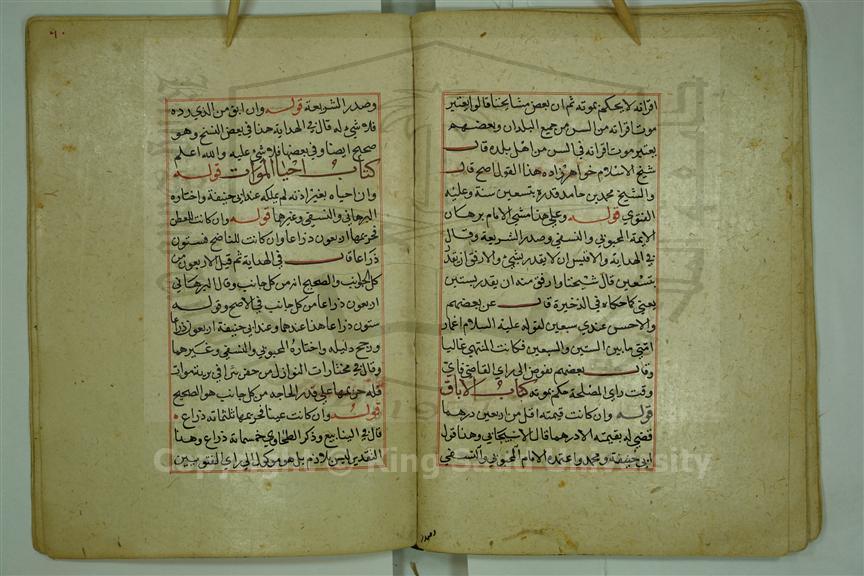 اقرانه لا يحكم بموته ثم ان بعض مشايخنا قالوا يعتبر
موت اقرانه من السن من جميع البلدان وبعضهم
يعتبر موت اقرانه في السن من اهل بلده قال
شيخ الاسلام خواهر زاده هذا القول اصح قال
والشيخ محمد بن حامد قدره بتسعين سنة وعليه
الفتوى قوله وعلى هذا مشى الامام برهان
الايمة المحبوبي والنسفي وصدر الشريعة وقال
في الهداية والاقيس ان لا يقدر بشيء والارفق ان يقدر
بتسعين قال شيخنا وارفق منه ان يقدر بستين
يعني كما حكاه في الذخيرة قال عن بعضهم
والاحسن عندي سبعين لقوله عليه السلام اعمار
امتي ما بين الستين والسبعين فكانت المنتهى غالبا
وقال بعضهم يفوض الى راي القاضي فاي
وقت راى المصلحة حكم بموته كتاب الاباق
قوله وان كانت قيمته اقل من اربعين درهما
قضي له بقيمته الا درهما قال الاسبيجابي وهذا قول
ابي حنيفة ومحمد واعتمده الامام المحبوبي والنسفي
وصدر
٦٠
وصدر الشريعة قوله وان ابق من الذي رده
فلا شيء له قال في الهداية هذا في بعض النسخ وهو
صحيح ايضا وفي بعضها فلا شيء عليه والله اعلم
كتاب احيا الموات قوله
وان احياه بغير اذنه لم يملكه عند ابي حنيفة واختاره
البرهاني والنسفي وغيرها قوله وان كانت للعطن
فحريمها اربعون ذراعا وان كانت للناضح فستون
ذراعا قال في الهداية ثم قيل الاربعون من
كل الجوانب والصحيح انه من كل جانب وقال البرهاني
اربعون ذراعا من كل جانب في الاصح وقوله
ستون ذراعا هذا عندهما وعند ابي حنيفة اربعون ذراعا
ورجح دليله واختاره المحبوبي والنسفي وغيرهما
وقال في مختارات النوازل من حفر بئرا في برية موات
فله حريمها على قدر الحاجة من كل جانب هو الصحيح
قوله وان كانت عينا فحريمها ثلثمائة ذراع
قال في الينابيع وذكر الطحاوي خمسمائة ذراع وهذا
التقدير ليس بلازم بل هو موكول الى راي
Copyright © King Saud University